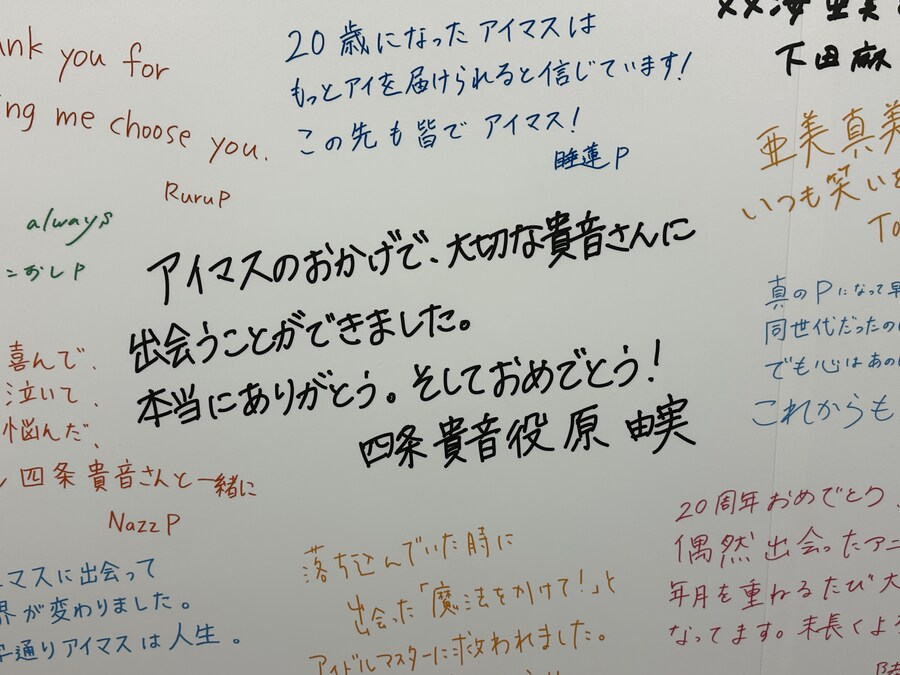 you for
me choose you.
RuruP
20歳になったアイマスは
もっとアイを届けられると信じています!
この先も皆でアイマス!
睡蓮P
下田麻
亜美真美
いつも笑いを
always
おしP
アイマスのおかげで、大切な貴音さんに
出会うことができました。
本当にありがとう。そしておめでとう!
四条貴音役 原 由実
真のPになって早
同世代だったの
でも心はあの
これからも
喜んで、
泣いて、
悩んだ、
四条貴音さんと一緒に
NazzP
マスに出会って
界が変わりました。
通りアイマスは人生。
落ち込んでいた時に
出会った「魔法をかけて!」と
アイドルマスターに救われました。
20周年おめでとう
偶然出会ったアニ
年月を重ねるたび大
なってます。末長くよ